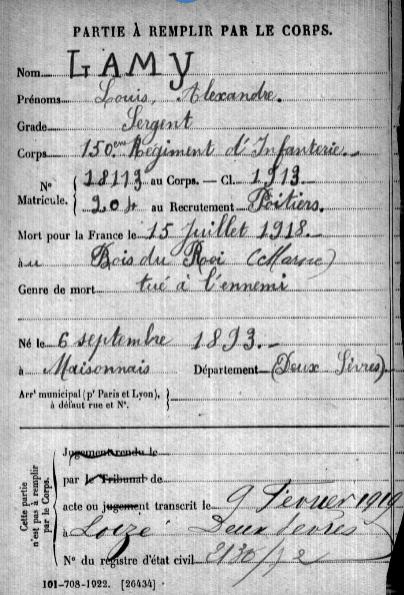 PARTIE À REMPLIR PAR LE CORPS.
Nom LAMY
Prénoms Louis, Alexandre.
Grade Sergent
Corps 150ème Régiment d'Infanterie.
N° Matricule. { 18113 au Corps. — Cl. 1913
204 au Recrutement Poitiers.
Mort pour la France le 15 Juillet 1918.
au Bois du Roi (Marne)
Genre de mort tué à l'ennemi
Né le 6 septembre 1893.
à Maisonnais Département (Deux Sèvres)
Arrt municipal (pr Paris et Lyon), à défaut rue et N°.
Cette partie n'est pas à remplir par le Corps.
Jugement rendu le
par le Tribunal de
acte ou jugement transcrit le 9 Février 1919
à Loizé Deux Sèvres
N° du registre d'état civil
101-708-1922. [26434]